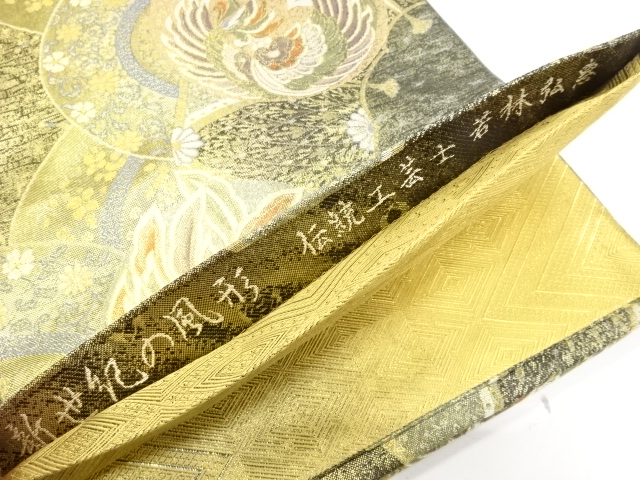 新世紀の風形 伝統工芸士 若林弘